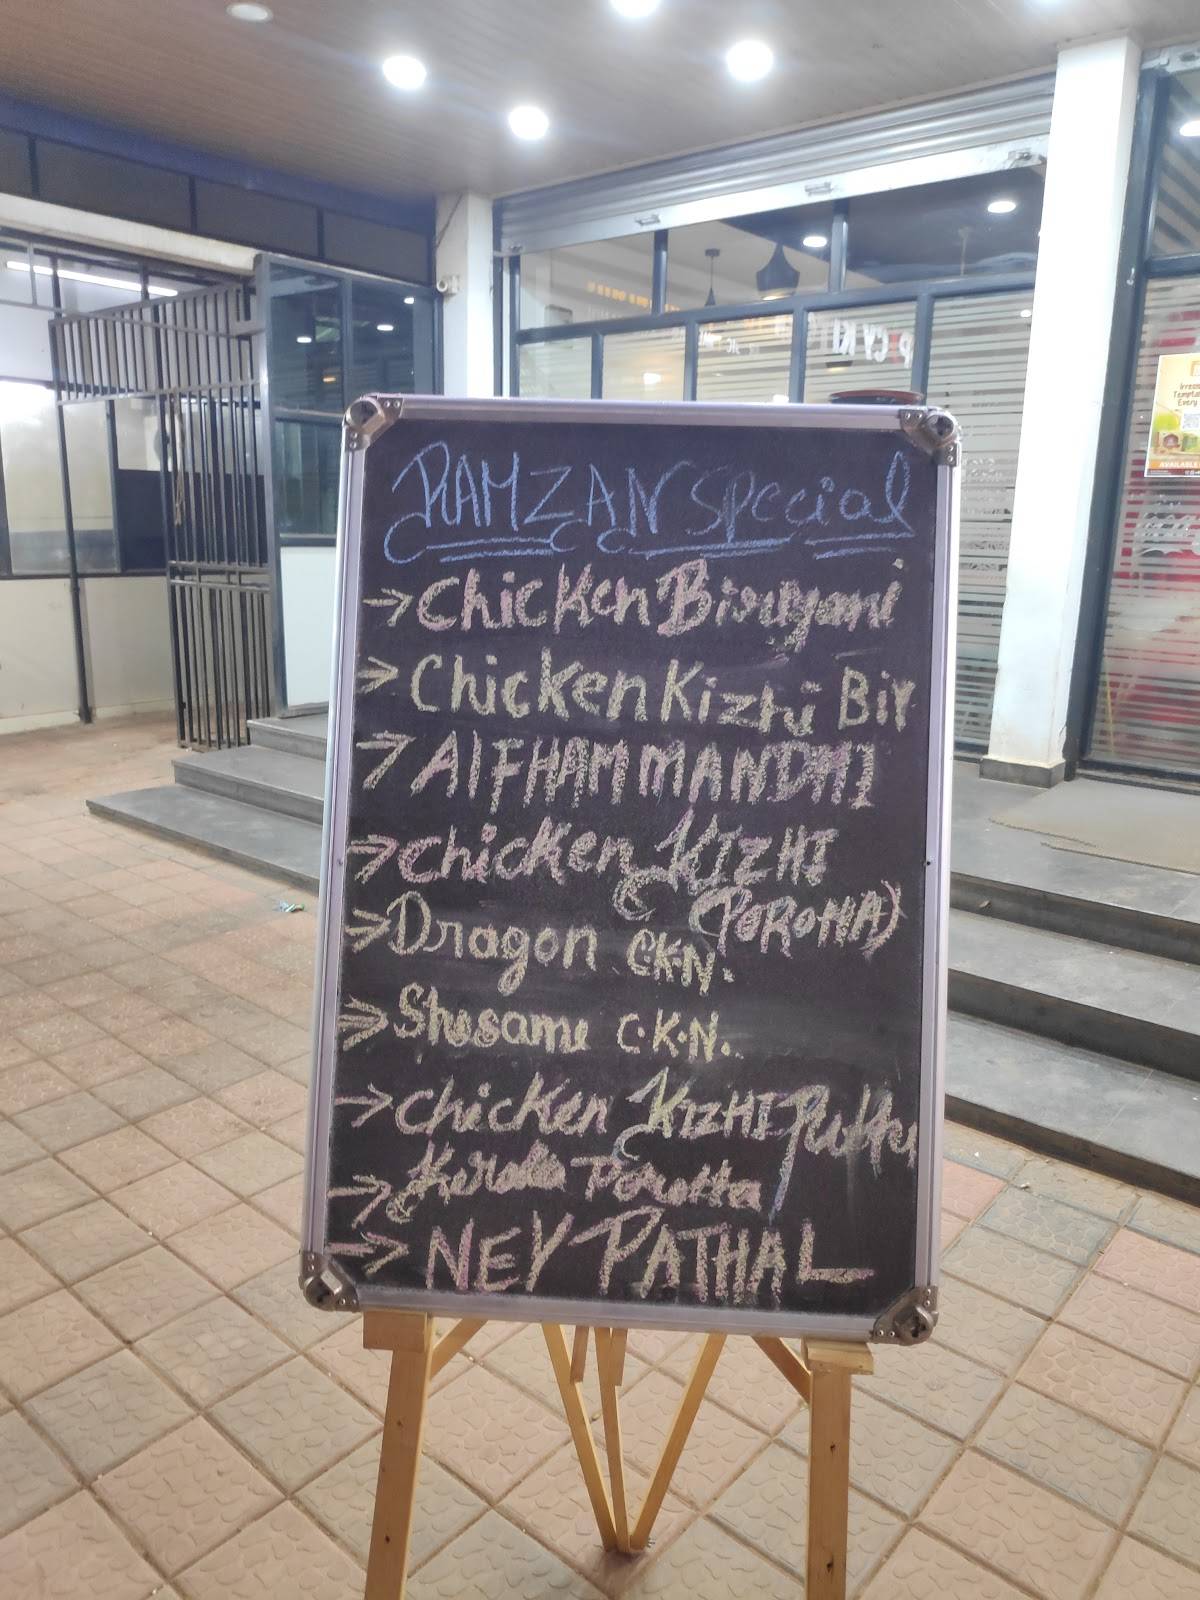 RAMZAN Special
→ Chicken Biriyani
→ Chicken Kizhi Bir
→ AlFHAM MANDHI
→ chicken KIZHI
(POROHA)
→ Dragon C.K.N.
→ Shesame C.K.N.
→ chicken KIZHI Puttu
→ Kerala Porotta
→ NEY PATHAL
Every
AVAILABLE